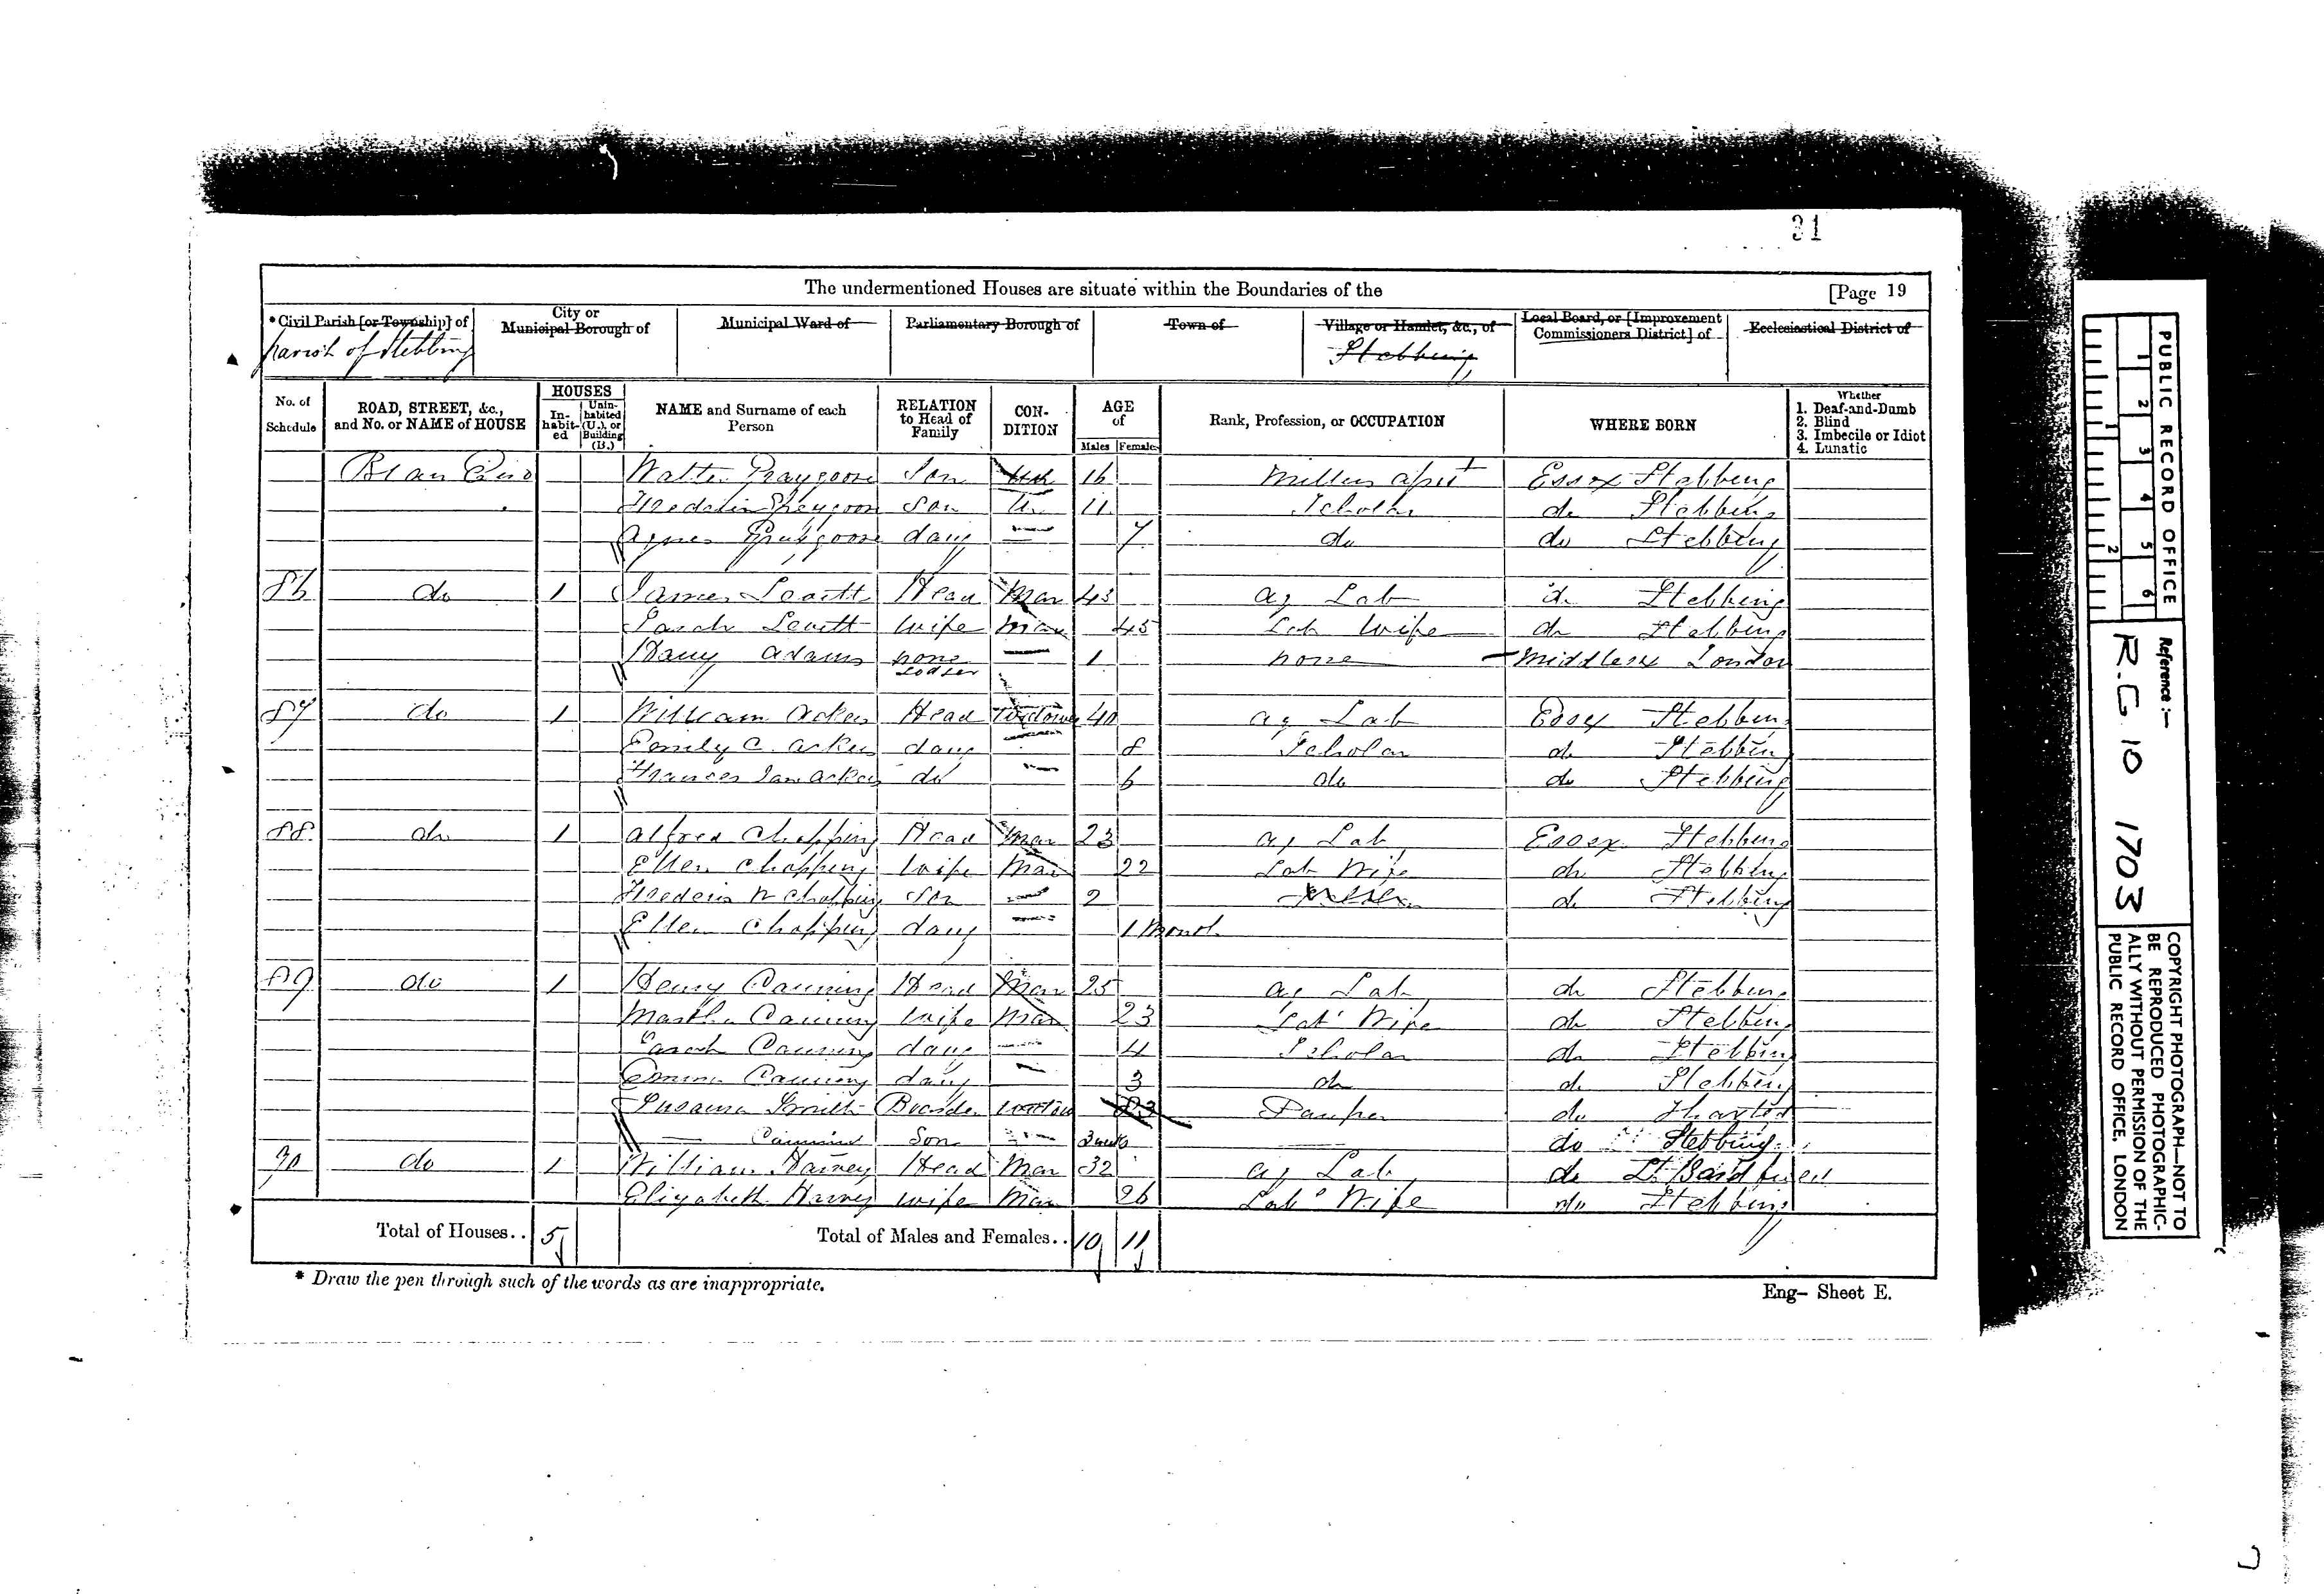 31
The undermentioned Houses are situate within the Boundaries of the [Page 19
* Civil Parish [or Township] of City or Municipal Borough of Municipal Ward of Parliamentary Borough of Town of Village or Hamlet, &c., of Local Board, or [Improvement Commissioners District] of Ecclesiastical District of
parish of Stebbing Stebbing
No. of Schedule ROAD, STREET, &c., and No. or NAME of HOUSE HOUSES In-habit-ed Unin-habited (U.), or Building (B.) NAME and Surname of each Person RELATION to Head of Family CON-DITION AGE of Males Females Rank, Profession, or OCCUPATION WHERE BORN Whether 1. Deaf-and-Dumb 2. Blind 3. Imbecile or Idiot 4. Lunatic
Bran End Walter Graygoose Son 16 Essex Stebbing
Graygoose Son Un 11 Scholar do Stebbing
Agnes Graygoose daug — 7 do do Stebbing
86 do 1 James Levitt Head Mar 43 ag Lab do Stebbing
Sarah Levitt Wife Mar 45 Lab Wife do Stebbing
Harry Adams none Lodger — 1 none Middlesex London
87 do 1 William Acker Head Widower 40 ag Lab Essex Stebbing
Emily C. Acker daug — 8 Scholar do Stebbing
Frances Jane Acker do — 6 do do Stebbing
88 do 1 Alfred Chopping Head Mar 23 ag Lab Essex Stebbing
Ellen Chopping Wife Mar 22 Lab Wife do Stebbing
Frederic W Chopping Son — 2 do Stebbing
Ellen Chopping daug — 1 Month
89 do 1 Henry Canning Head Mar 25 ag Lab do Stebbing
Martha Canning Wife Mar 23 Lab Wife do Stebbing
Sarah Canning daug — 4 Scholar do Stebbing
Emma Canning daug — 3 do do Stebbing
Susanna Smith Boarder Widow 83 Pauper do
— Canning Son — 3 weeks — do Stebbing
90 do 1 William Harvey Head Mar 32 ag Lab do Lt Bardfield
Elizabeth Harvey Wife Mar 26 Lab Wife do Stebbing
Total of Houses.. 5 Total of Males and Females.. 10 11
* Draw the pen through such of the words as are inappropriate.
Eng- Sheet E.
PUBLIC RECORD OFFICE
1 2 3 4 5 6
1 2
Reference :-
R.G 10 1703
COPYRIGHT PHOTOGRAPH—NOT TO
BE REPRODUCED PHOTOGRAPHIC-
ALLY WITHOUT PERMISSION OF THE
PUBLIC RECORD OFFICE, LONDON